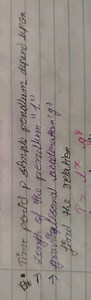 Q. Time period of simple pendulum depend upon
→ Length of the pendulum "l"
→ gravitational acceleration (g)
find the relation
T = l^x g^y